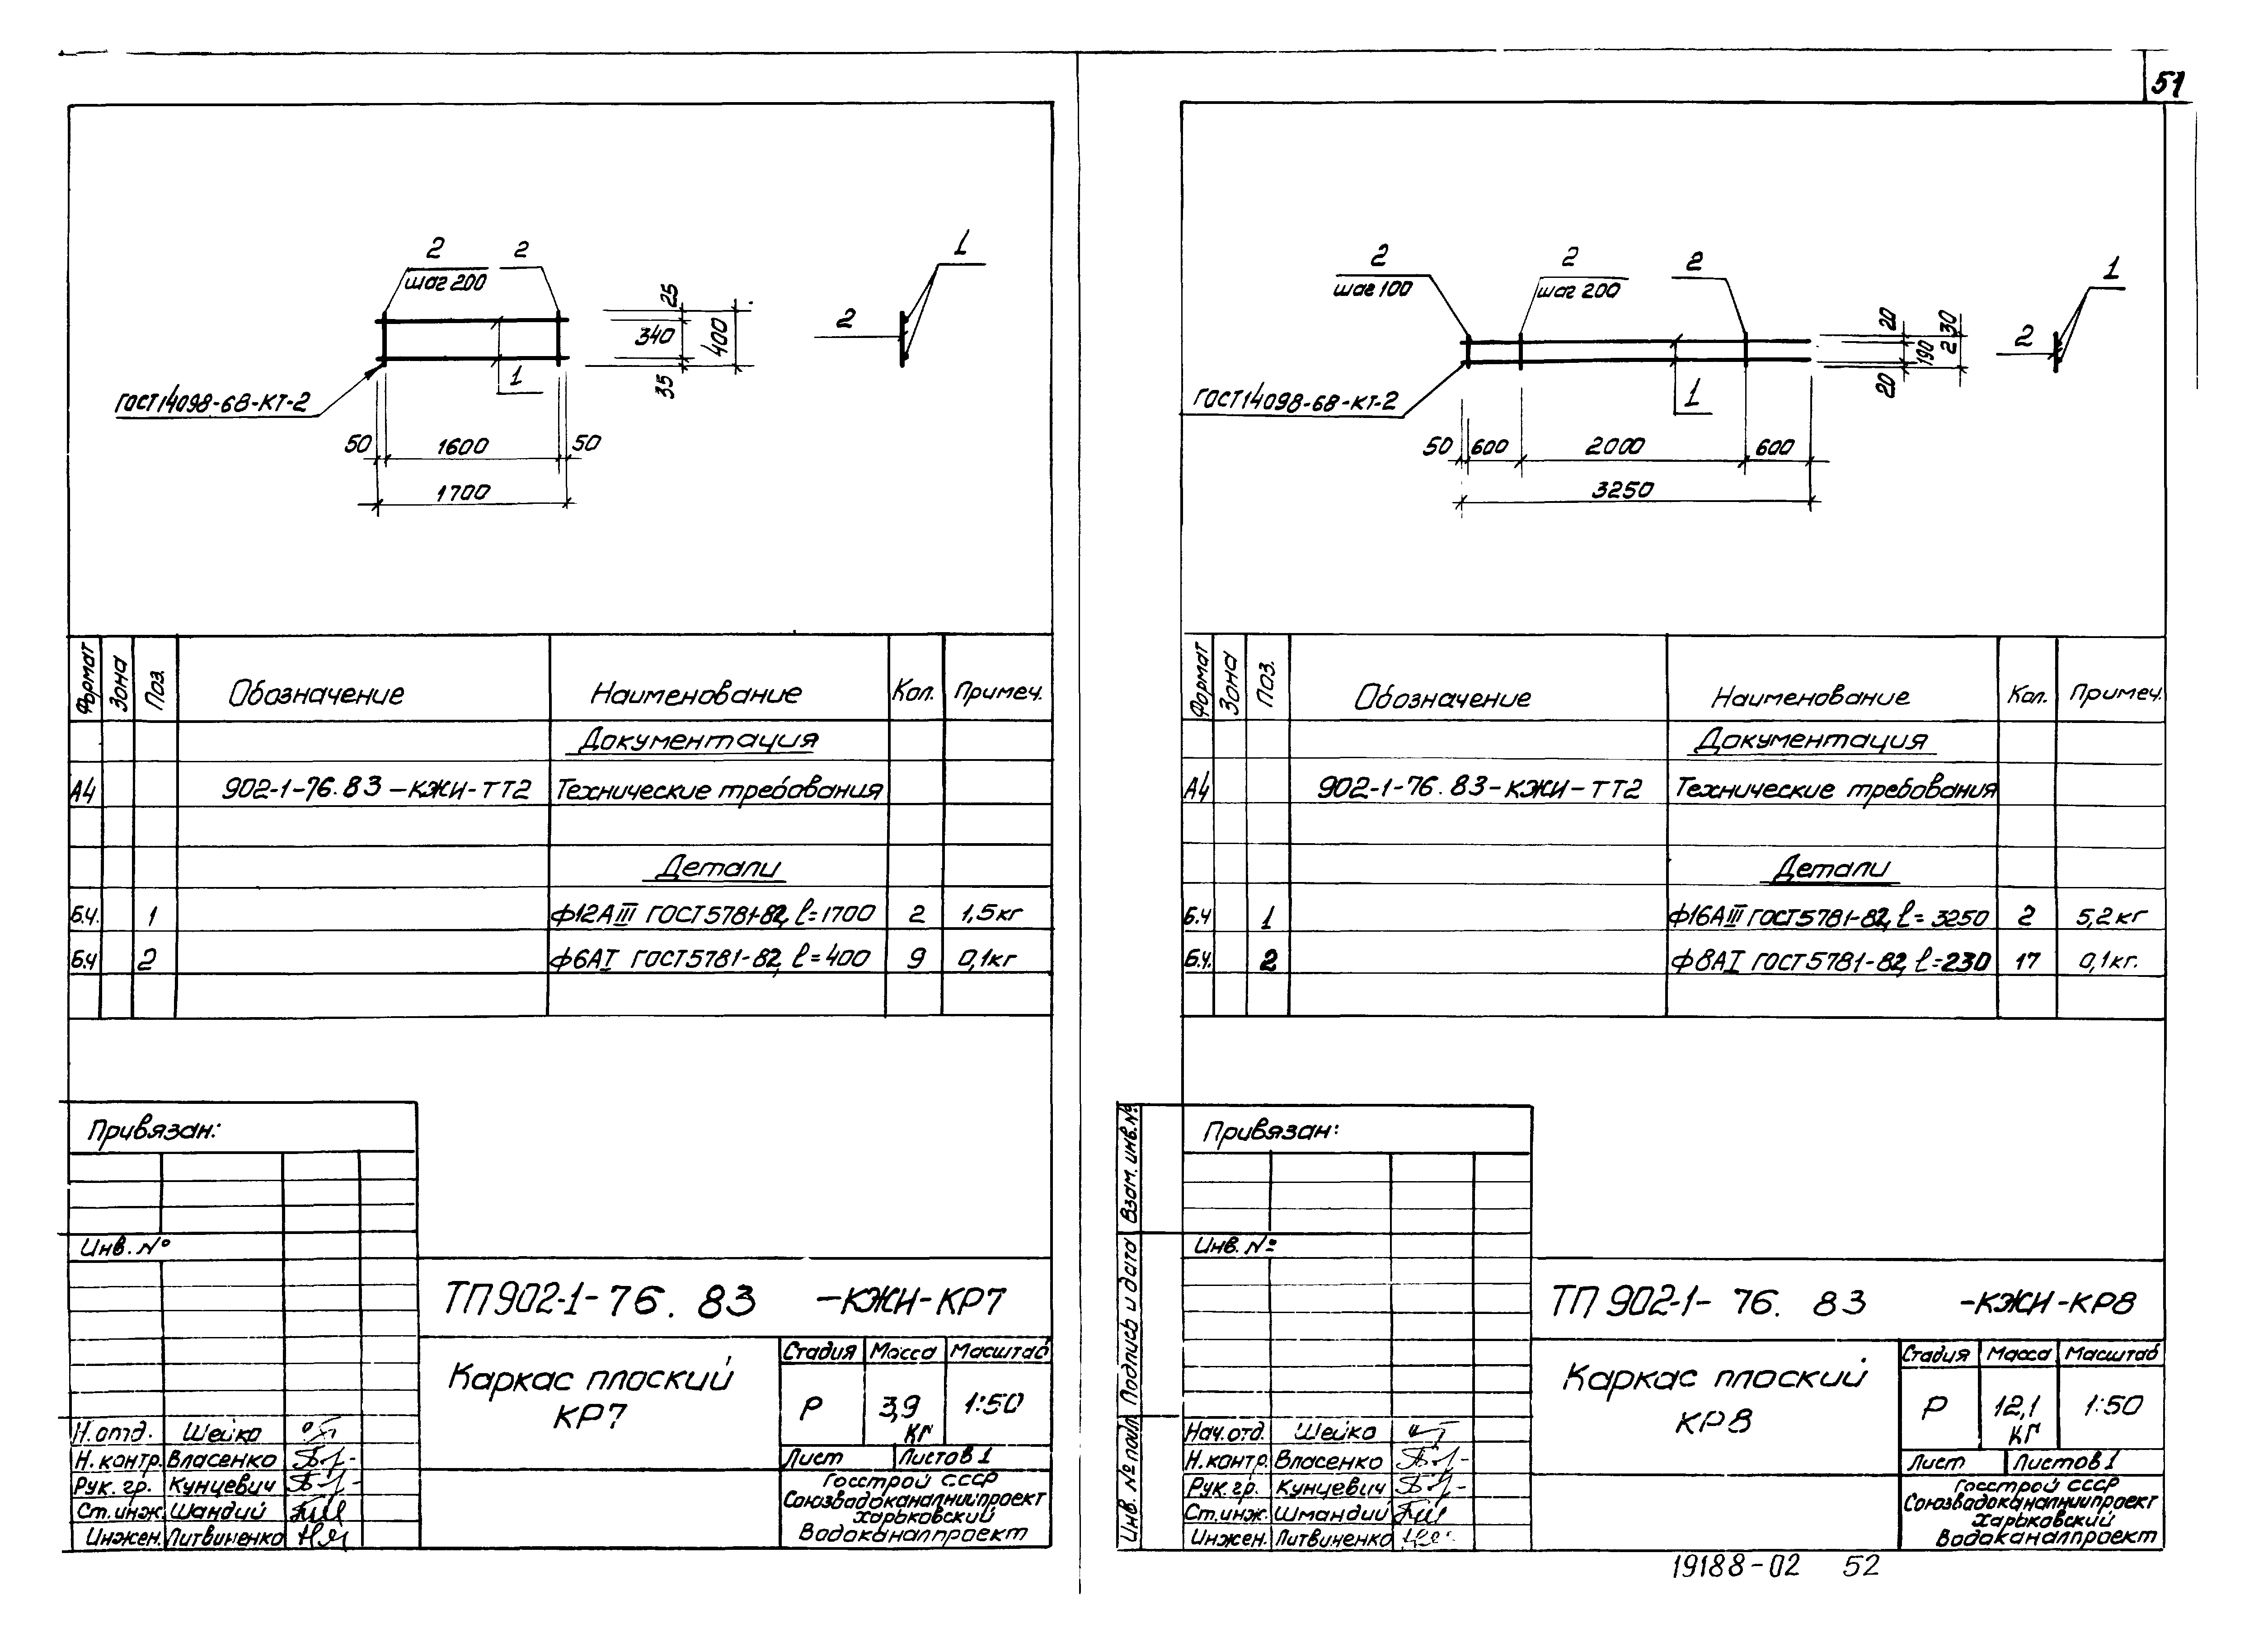 51
2
2
шаг 200
25
340
400
35
1
ГОСТ14098-68-КТ-2
50
1600
50
1700
1
2
Формат Зона Поз. Обозначение Наименование Кол. Примеч.
Документация
А4 902-1-76.83-КЖИ-ТТ2 Технические требования
Детали
Б.Ч. 1 Ф12АIII ГОСТ5781-82, l=1700 2 1,5кг
Б.Ч 2 Ф6АI ГОСТ5781-82, l=400 9 0,1кг
Привязан:
Инв. №
ТП902-1-76.83 -КЖИ-КР7
Каркас плоский
КР7
Стадия Масса Масштаб
Р 3,9 кг 1:50
Лист Листов 1
Н.отд. Шейко
Н.контр. Власенко
Рук. гр. Кунцевич
Ст.инж. Шандий
Инжен. Литвиненко
Госстрой СССР
Союзводоканалниипроект
Харьковский
Водоканалпроект
2
шаг 100
2
шаг 200
2
20
190
230
20
1
ГОСТ14098-68-КТ-2
50
600
2000
600
3250
1
2
Формат Зона Поз. Обозначение Наименование Кол. Примеч.
Документация
А4 902-1-76.83-КЖИ-ТТ2 Технические требования
Детали
Б.Ч 1 Ф16АIII ГОСТ5781-82, l=3250 2 5,2кг
Б.Ч. 2 Ф8АI ГОСТ5781-82, l=230 17 0,1кг.
Взам. инв.№
Подпись и дата
Инв. № подл
Привязан:
Инв. №
ТП902-1-76.83 -КЖИ-КР8
Каркас плоский
КР8
Стадия Масса Масштаб
Р 12,1 кг 1:50
Лист Листов 1
Нач.отд. Шейко
Н.контр. Власенко
Рук.гр. Кунцевич
Ст.инж. Шмандий
Инжен. Литвиненко
Госстрой СССР
Союзводоканалниипроект
Харьковский
Водоканалпроект
19188-02 52